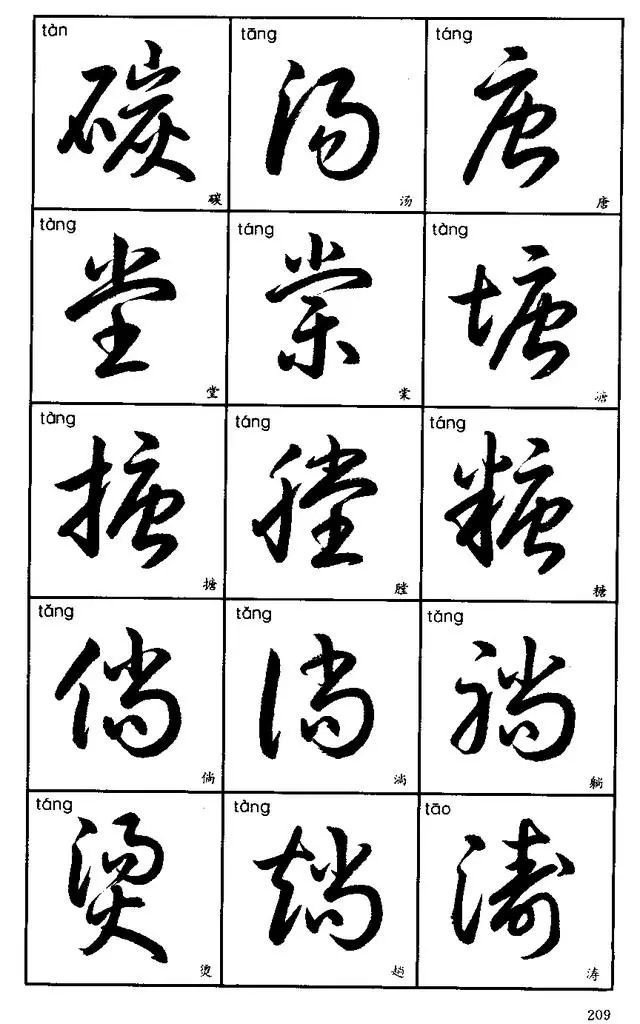 tàn tāng táng
碳 汤 唐
碳 汤 唐
tàng táng tàng
堂 棠 塘
堂 棠 塘
tàng táng táng
搪 膛 糖
搪 膛 糖
tǎng tǎng tǎng
倘 淌 躺
倘 淌 躺
táng tàng tāo
烫 趟 涛
烫 趟 涛
209